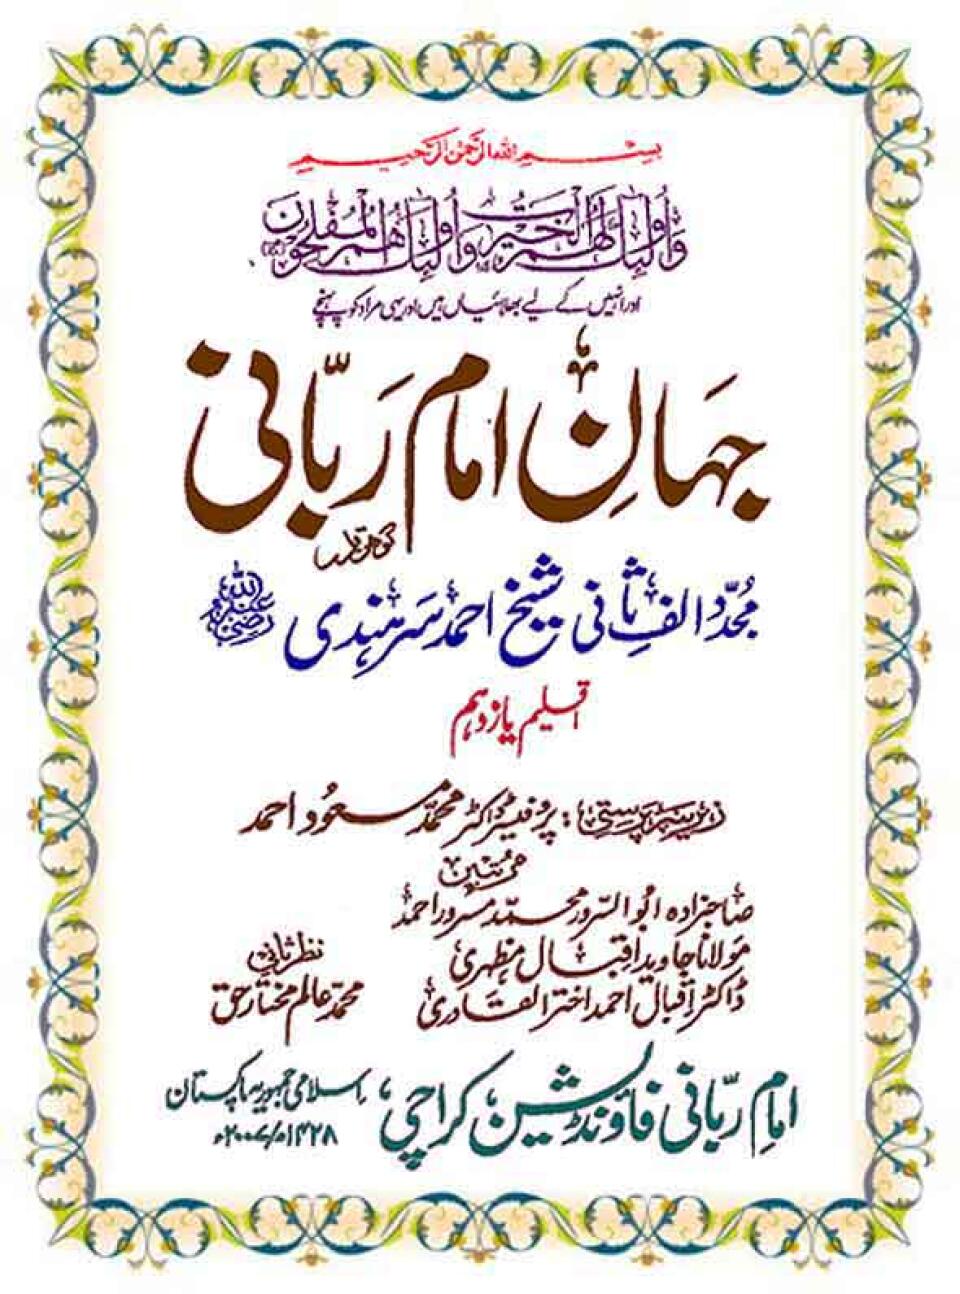 بسم الله الرحمن الرحیم
وَأُولٰئِكَ لَهُمُ الْخَيْرَاتُ وَأُولٰئِكَ هُمُ الْمُفْلِحُونَ
اور انہیں کے لیے بھلائیاں ہیں اور یہی مراد کو پہنچے
جہانِ امام ربّانی
مجدّد الف ثانی شیخ احمد سرہندی رضی اللہ عنہ
اقلیم یازدہم
زیر سرپرستی : پروفیسر ڈاکٹر محمّد مسعود احمد
مرتبین
صاحبزادہ ابوالسرور محمّد مسرور احمد
مولانا جاوید اقبال مظہری
ڈاکٹر اقبال احمد اختر القادری
نظر ثانی
محمّد عالم مختار حق
امام ربّانی فاؤنڈیشن کراچی، اسلامی جمہوریہ پاکستان
۱۴۲۸ھ/۲۰۰۷ء